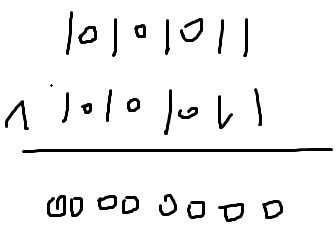 10101011
^ 10101011
00000000